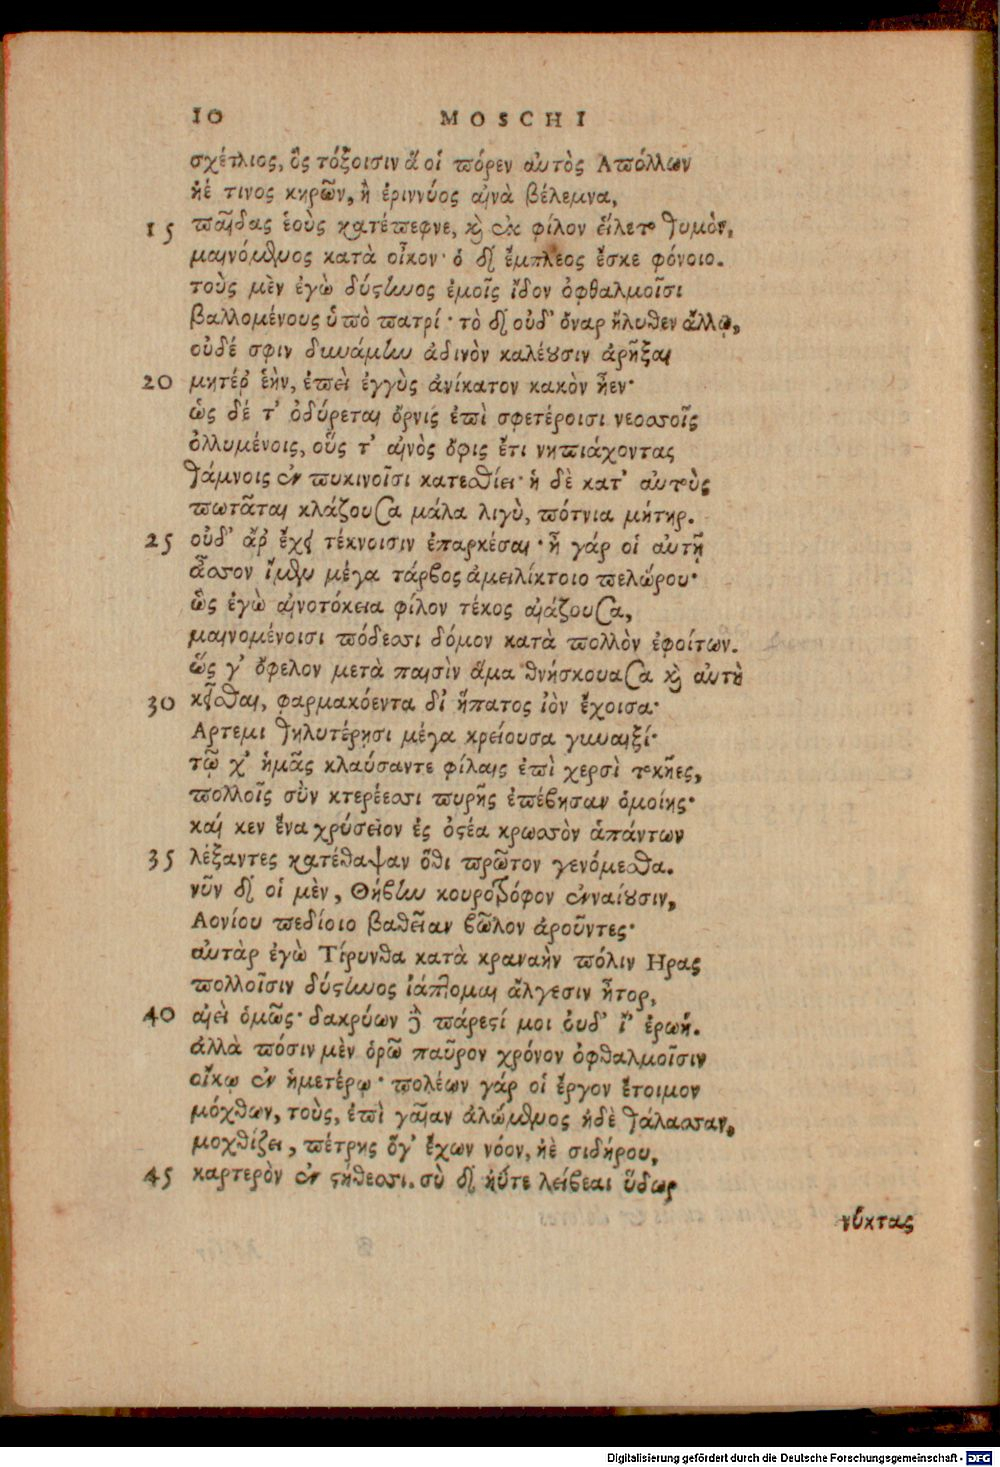 10 MOSCHI
σχέτλιος, ὃς τόξοισιν ἅ οἱ πόρεν αὐτὸς Απόλλων
ἠέ τινος κηρῶν, ἢ ἐριννύος αἰνὰ βέλεμνα,
15 παῖδας ἑοὺς κατέπεφνε, καὶ ἐκ φίλον εἵλετο θυμὸν,
μαινόμενος κατὰ οἶκον· ὁ δ᾽ ἔμπλεος ἔσκε φόνοιο.
τοὺς μὲν ἐγὼ δύστηνος ἐμοῖς ἴδον ὀφθαλμοῖσι
βαλλομένους ὑπὸ πατρί· τὸ δ᾽ οὐδ᾽ ὄναρ ἤλυθεν ἄλλῳ,
οὐδέ σφιν δυνάμην ἀδινὸν καλέουσιν ἀρῆξαι
20 μητέρ᾽ ἑὴν, ἐπεὶ ἐγγὺς ἀνίκατον κακὸν ἦεν·
ὡς δέ τ᾽ ὀδύρεται ὄρνις ἐπὶ σφετέροισι νεοσσοῖς
ὀλλυμένοις, οὕς τ᾽ αἰνὸς ὄφις ἔτι νηπιάχοντας
θάμνοις ἐν πυκινοῖσι κατεσθίει· ἡ δὲ κατ᾽ αὐτοὺς
πωτᾶται κλάζουσα μάλα λιγὺ, πότνια μήτηρ.
25 οὐδ᾽ ἄρ᾽ ἔχει τέκνοισιν ἐπαρκέσαι· ἦ γάρ οἱ αὐτῇ
ἆσσον ἴμεν μέγα τάρβος ἀμειλίκτοιο πελώρου·
ὣς ἐγὼ αἰνοτόκεια φίλον τέκος αἰάζουσα,
μαινομένοισι πόδεσσι δόμον κατὰ πολλὸν ἐφοίτων.
ὥς γ᾽ ὄφελον μετὰ παισὶν ἅμα θνήσκουσα καὶ αὐτὴ
30 κεῖσθαι, φαρμακόεντα δι᾽ ἥπατος ἰὸν ἔχοισα·
Αρτεμι θηλυτέρησι μέγα κρείουσα γυναιξί·
τῷ χ᾽ ἡμᾶς κλαύσαντε φίλαις ἐπὶ χερσὶ τοκῆες,
πολλοῖς σὺν κτερέεσσι πυρῆς ἐπέβησαν ὁμοίης·
καί κεν ἕνα χρύσειον ἐς ὀστέα κρωσσὸν ἁπάντων
35 λέξαντες κατέθαψαν ὅθι πρῶτον γενόμεσθα.
νῦν δ᾽ οἱ μὲν, Θήβην κουροτρόφον ἐνναίουσιν,
Αονίου πεδίοιο βαθεῖαν βῶλον ἀροῦντες·
αὐτὰρ ἐγὼ Τίρυνθα κατὰ κραναὴν πόλιν Ηρας
πολλοῖσιν δύστηνος ἰάπτομαι ἄλγεσιν ἦτορ,
40 αἰεὶ ὁμῶς· δακρύων δὲ πάρεστί μοι οὐδ᾽ ἴ᾽ ἐρωή.
ἀλλὰ πόσιν μὲν ὁρῶ παῦρον χρόνον ὀφθαλμοῖσιν
οἴκῳ ἐν ἡμετέρῳ· πολέων γάρ οἱ ἔργον ἕτοιμον
μόχθων, τοὺς, ἐπὶ γαῖαν ἀλώμενος ἠδὲ θάλασσαν,
μοχθίζει, πέτρης ὅγ᾽ ἔχων νόον, ἠὲ σιδήρου,
45 καρτερὸν ἐν στήθεσσι. σὺ δ᾽ ηὔτε λείβεαι ὕδωρ
νύκτας
Digitalisierung gefördert durch die Deutsche Forschungsgemeinschaft - DFG